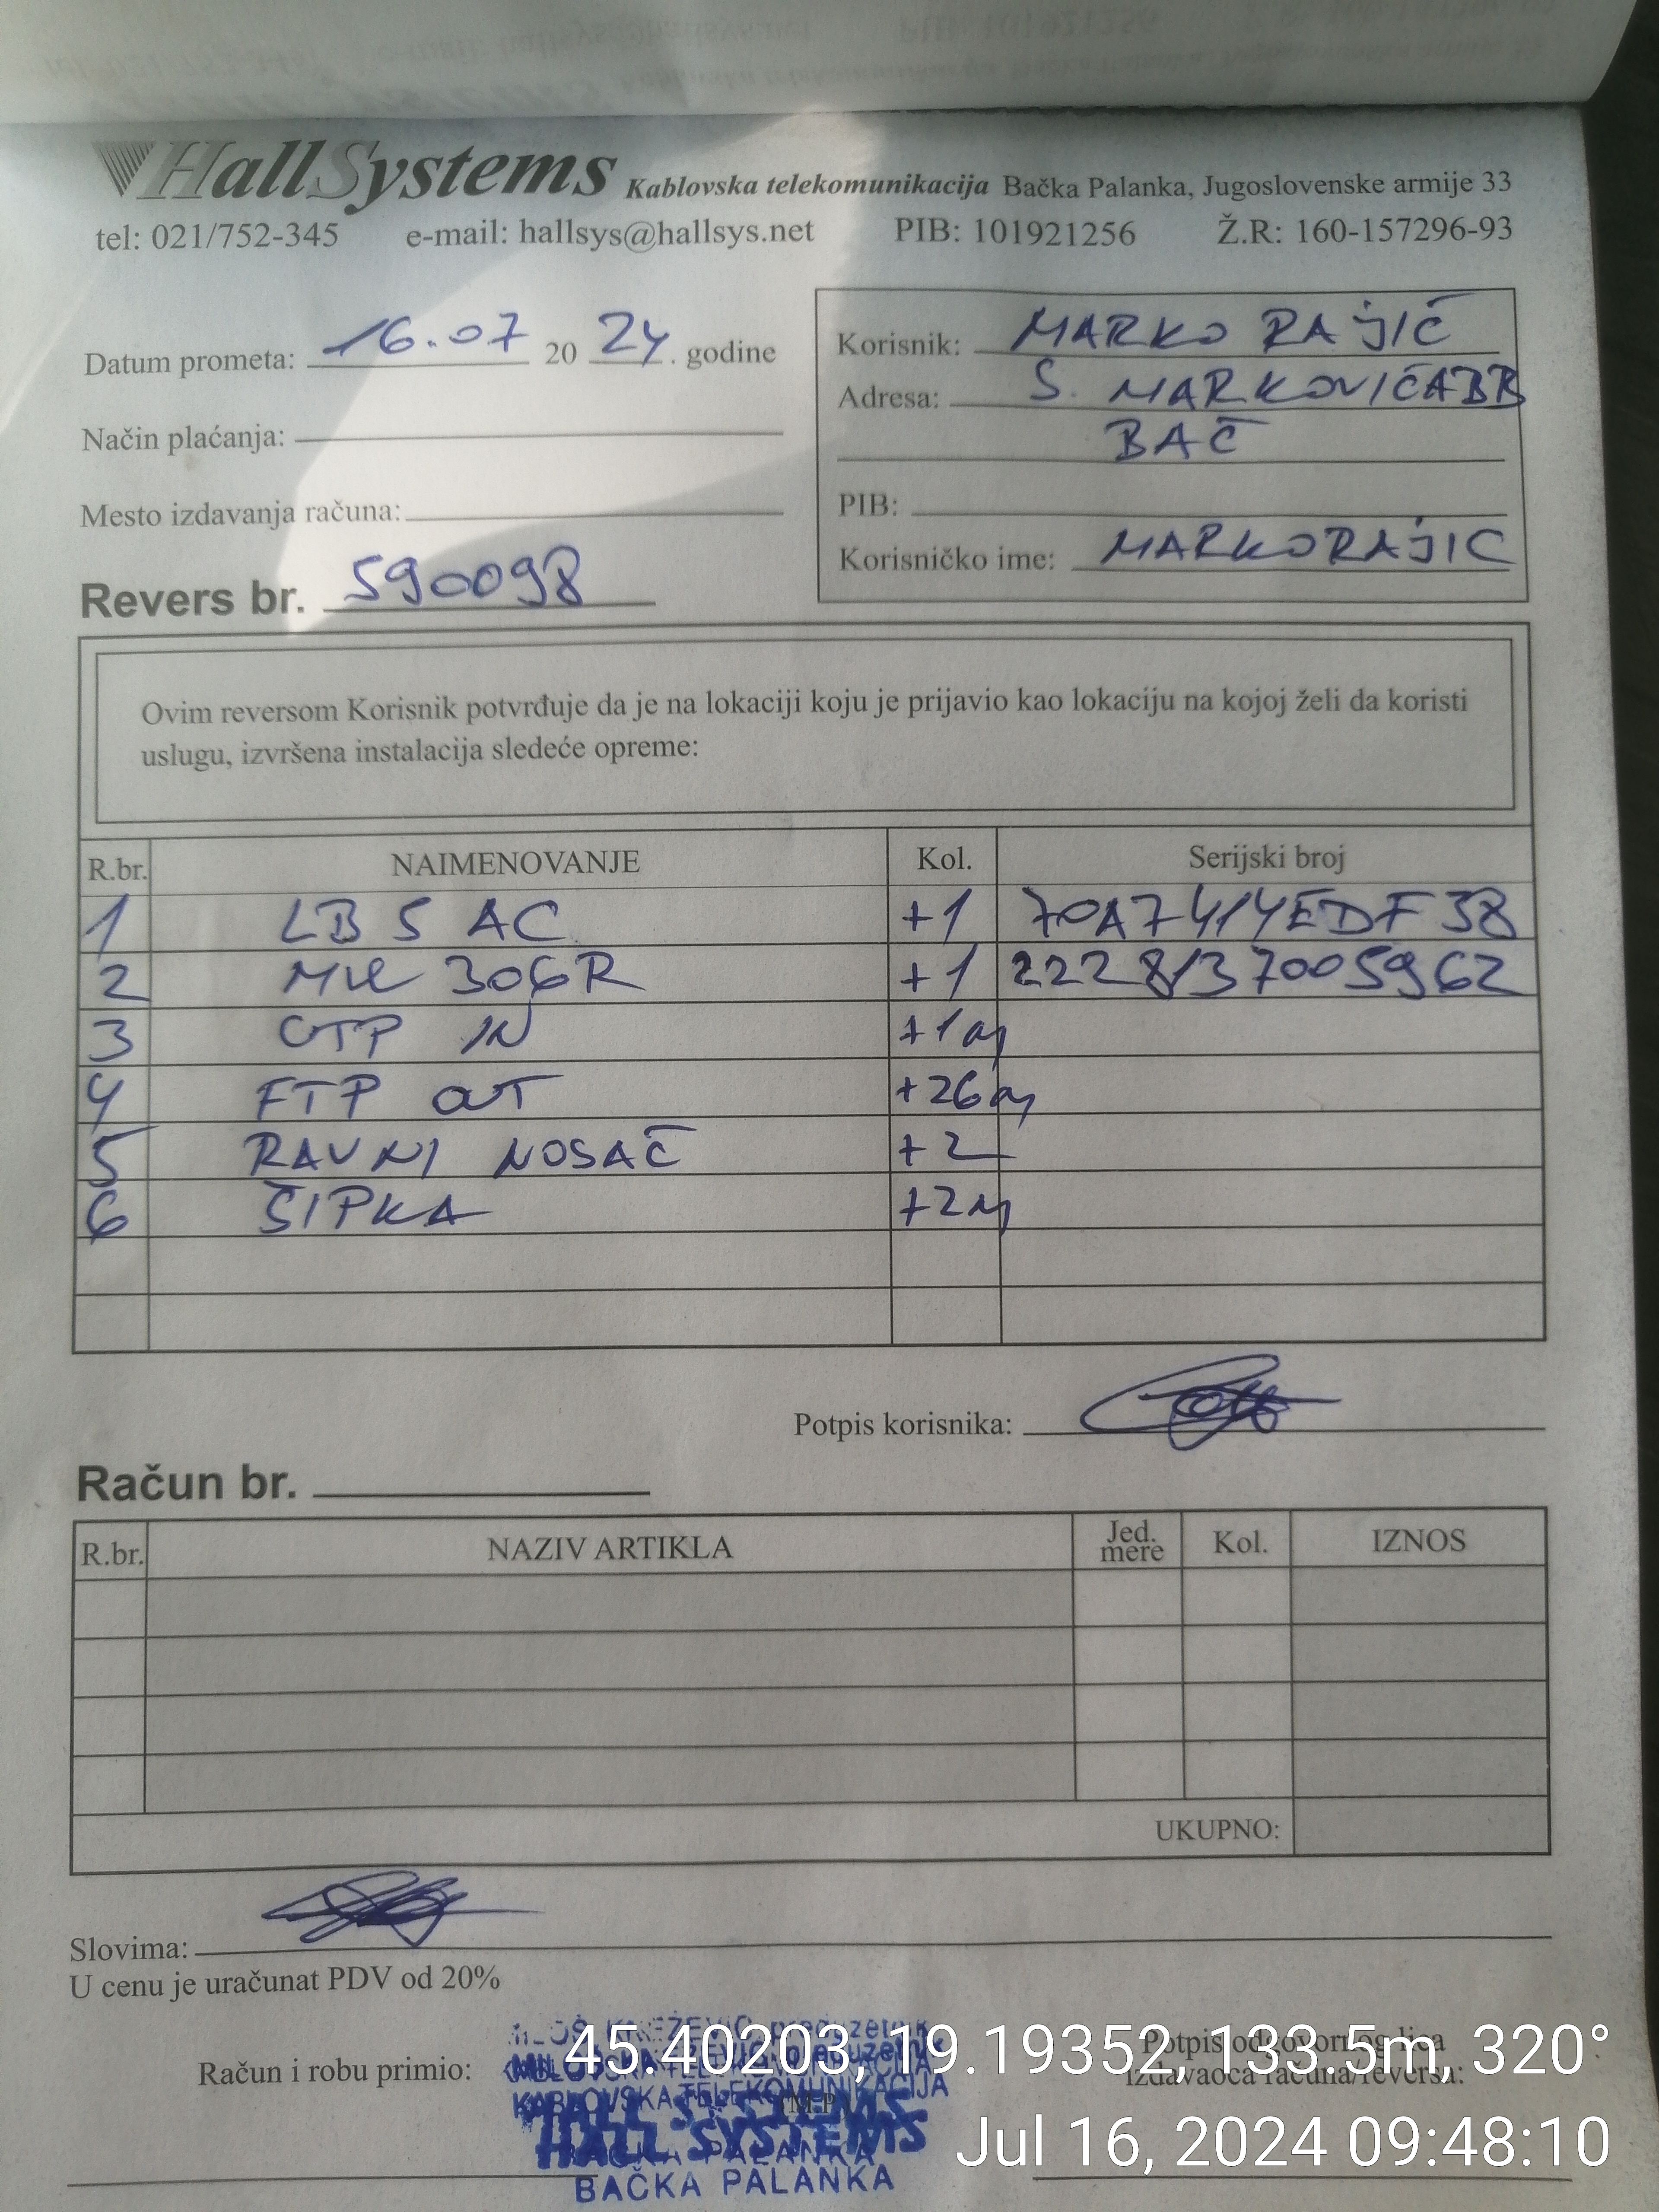 HallSystems Kablovska telekomunikacija Bačka Palanka, Jugoslovenske armije 33
tel: 021/752-345 e-mail: hallsys@hallsys.net PIB: 101921256 Ž.R: 160-157296-93
Datum prometa: 16.07 20 24. godine
Način plaćanja:
Mesto izdavanja računa:
Revers br. 590098
Korisnik: MARKO RAJIĆ
Adresa: S. MARKOVIĆA BB
BAČ
PIB:
Korisničko ime: MARKORAJIC
Ovim reversom Korisnik potvrđuje da je na lokaciji koju je prijavio kao lokaciju na kojoj želi da koristi
uslugu, izvršena instalacija sledeće opreme:
R.br. NAIMENOVANJE Kol. Serijski broj
1 LB 5 AC +1 70A7414EDF38
2 306R +1 2228137005962
3 IN +1m
4 FTP OUT +26m
5 RAVNI NOSAČ +2
6 ŠIPKA +2m
Potpis korisnika:
Račun br.
R.br. NAZIV ARTIKLA Jed. mere Kol. IZNOS
UKUPNO:
Slovima:
U cenu je uračunat PDV od 20%
Računi robu primio:
Potpis odgovornog lica
izdavaoca računa/reversa:
KABLOVSKA TELEKOMUNIKACIJA
HALL SYSTEMS
BAČKA PALANKA
45.40203, 19.19352, 133.5m, 320°
Jul 16, 2024 09:48:10